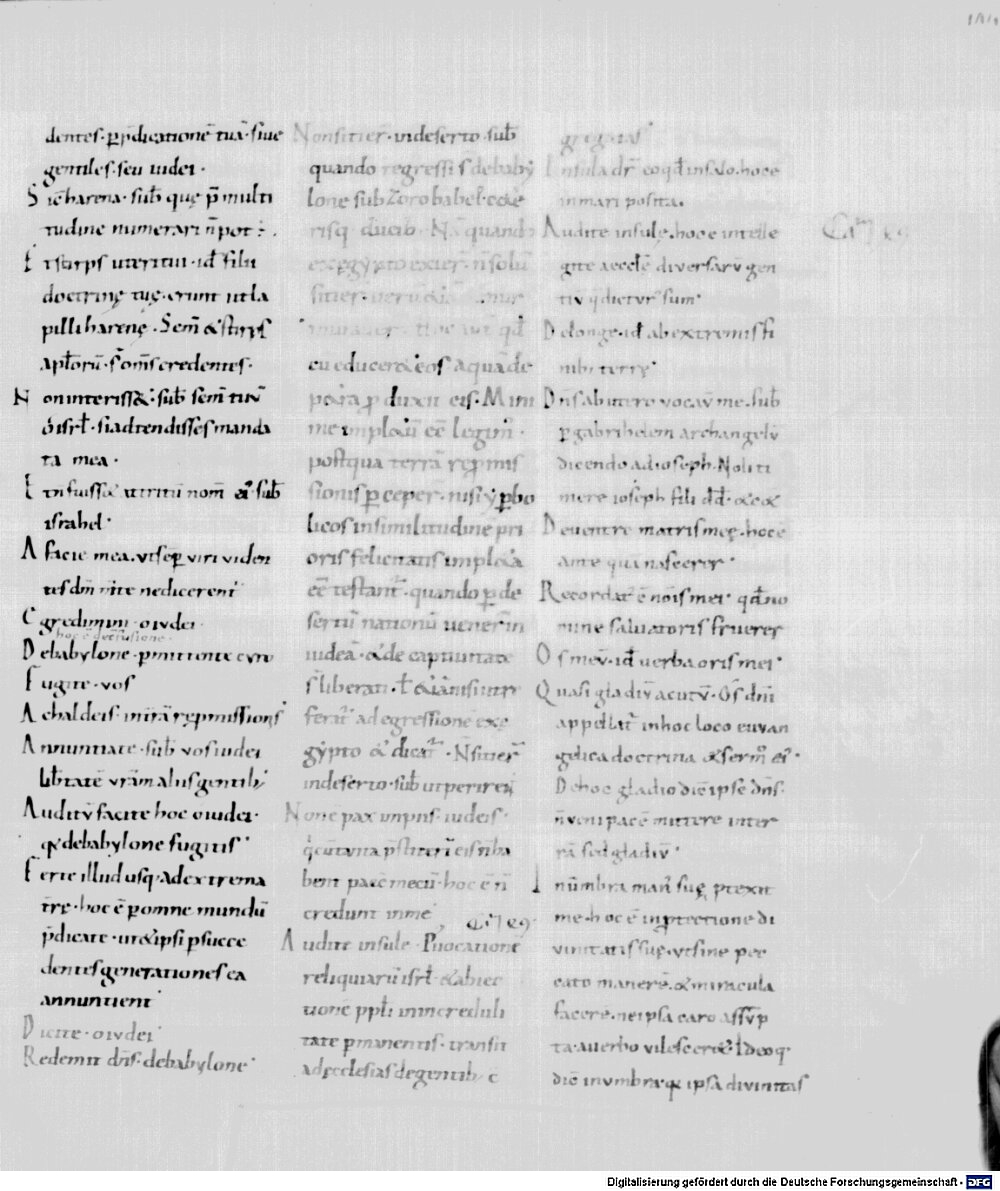 dentes · ꝑp̄dicationē tuā · siue
gentiles · seu iudei ·
Sic̄ harena · sub̄ quę p̄ multi
tudine numerari n̄ pot ·
Et stirps uteri tui · id̄ filii
doctrinę tuę · erunt ut la
pilli harenę · Sem̄ & stirps
apl̄orū · s̄ om̄s credentes ·
Non interiss& · sub̄ sem̄ tuū
ó isrl̄ · si adtendisses manda
ta mea ·
Et n̄ fuiss& attritū nom̄ ei · sub̄
israhel ·
A facie mea · ut semꝑ viri viden
tes dm̄ m̄te ne dicerent
Egredimini · o iudei ·
hoc ē de c̄fusione ·
De babylone · pmittente cyro
Fugite · vos
A chaldeis · in t̄rā rep̄missionis
Annuntiate · sub̄ vos iudei
lib̄tatē vr̄am aliis gentib;
Auditū facite hoc o iudei ·
q̇ de babylone fugitis
Ferte illud usq· ad extrema
t̄rę · hoc ē ꝑ omne mundū
p̄dicate · ut & ipsi p succe
dentes generationes ea
annuntient
Dicite · o iudei
Redemit dn̄s · de babylone
Non sitier̄ · in deserto · sub̄
quando regressi s̄ de baby
lone sub Zorobabel · & &ē
risq· ducib · Nā quando
ex ęgypto exier · n̄ solū
sitier · verū &iā
q̄d
cū educer& eos aquā de
p&ra ꝓduxit eis · Mini
me impl&ū eē legim̄ ·
postquā terrā rep̄mis
sionis ꝑceper̄ · nisi yꝑbo
licos in similitudine pri
oris felicitatis impl&a
eē testant̄ · quando ꝑ de
sertū nationū vener̄ in
iudeā · & de captiuitate
s̄ liberati · ł &iā
ferit̄ ad egressionē ex ę
gypto & dicat̄ · N̄ sitier̄
in deserto · sub̄ ut perirent
Non ē pax impiis · iudeis ·
bent pacē mecū · hoc ē n̄
credunt in me
Ca 49
Audite insulę · P vocationē
reliquiarū isrl̄ · & abiec
tionē ppl̄i in increduli
tate pmanentis · transit
ad ęcclesias de gentib; ē
gregatas
Insula dr̄ eo q̄d in salo · hoc ē
in mari posita ·
Ca 49
Audite insulę · hoc ē intelle
gite aeccle diversarū gen
tiū q̄ dictur̄ sum ·
De longe · id̄ ab extremis fi
nib; terrę ·
Dn̄s ab utero vocaū me · sub̄
ꝑ gabrihelem archangelū
dicendo ad ioseph · Noli ti
mere ioseph fili dd̄ · & c&
De ventre matris meę · hoc ē
ante quā nascerer ·
Recordat̄ ē nōis mei · q̄d no
mine salvatoris fruerer
Os meū · id̄ verba oris mei ·
Quasi gladiū acutū · Os dn̄i
appellat̄ in hoc loco euvan
gelica doctrina & serm̄ ei ·
De hoc gladio diē ipse dn̄s ·
n̄ veni pacē mittere in ter
rā sed gladiū ·
In ūmbra man̄ suę ptexit
me · hoc ē in p̄tectione di
vinitatis suę · ut sine pec
cato manerē · & miracula
facerē · ne ipsa caro assūp
ta · a verbo vilescer& · Ideoq·
diē in umbra · q̇ ipsa divinitas
Digitalisierung gefördert durch die Deutsche Forschungsgemeinschaft - DFG